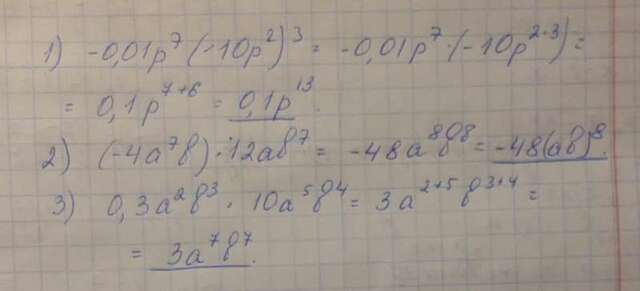 1) -0,01p⁷(-10p²)³ = -0,01p⁷·(-10p²·³) =
= 0,1p⁷⁺⁶ = 0,1p¹³.
2) (-4a⁷b)·12ab⁷ = -48a⁸b⁸ = -48(ab)⁸.
3) 0,3a²b³ · 10a⁵b⁴ = 3a²⁺⁵b³⁺⁴ =
= 3a⁷b⁷.